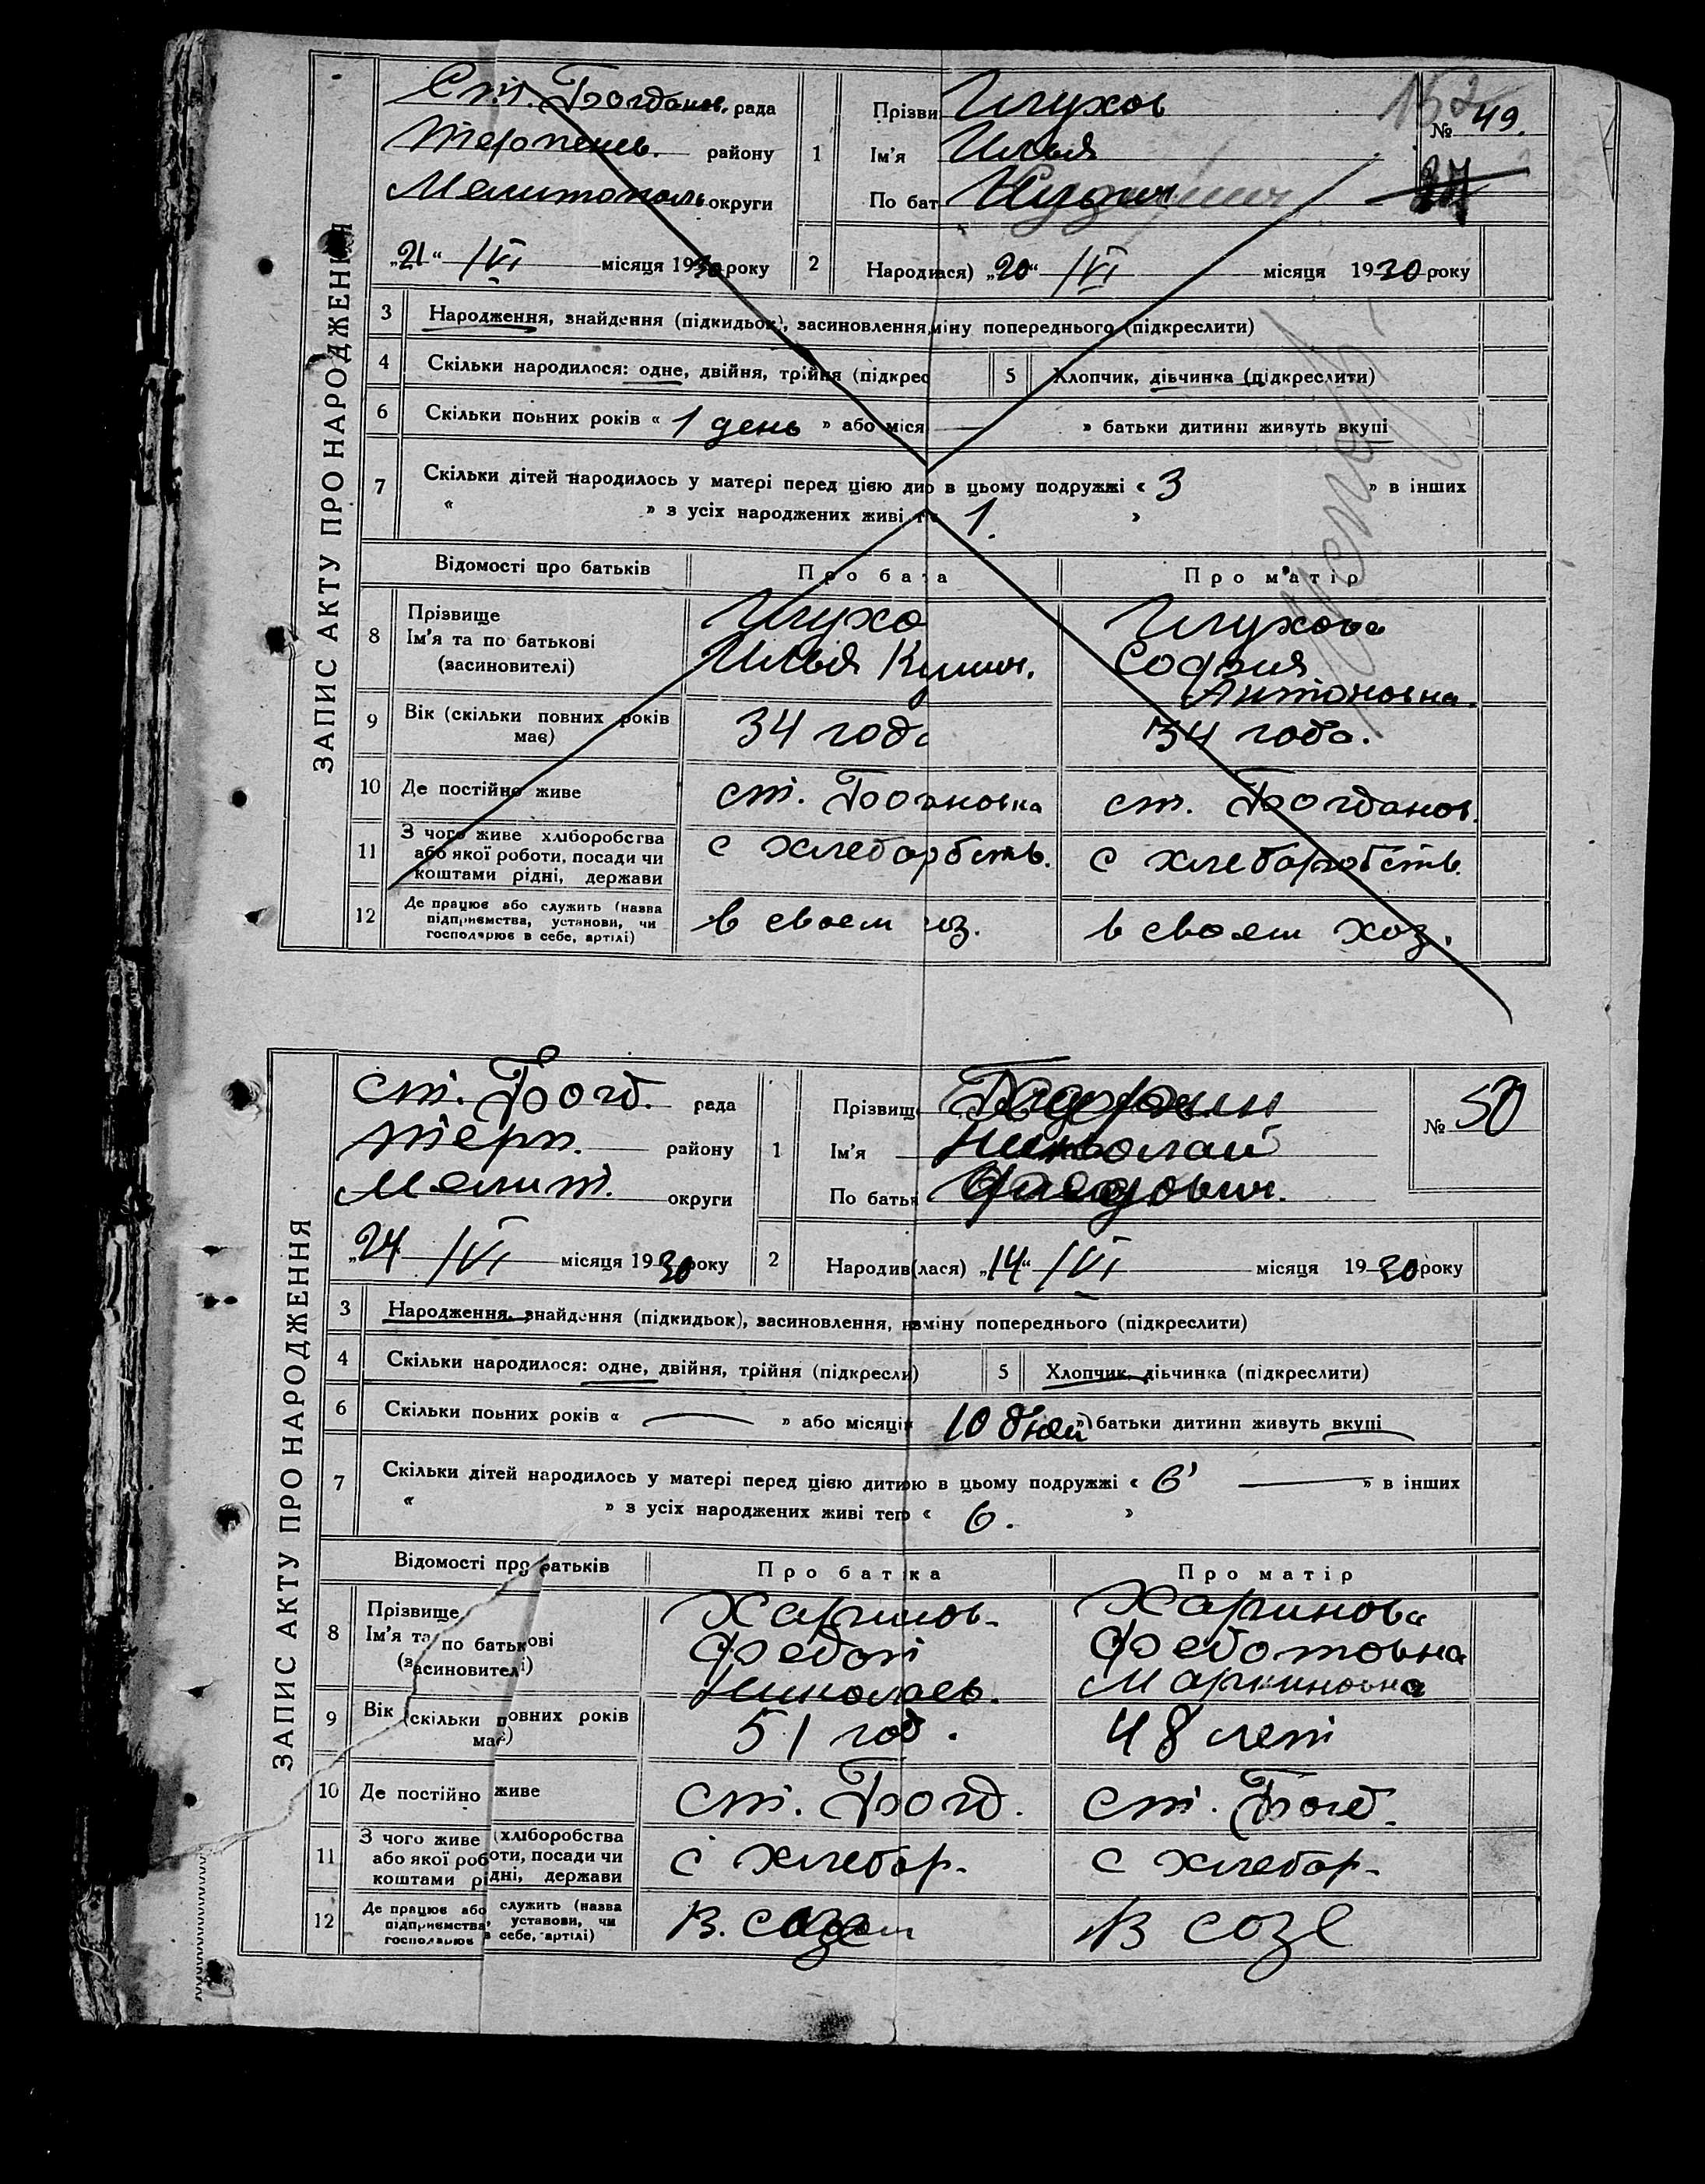 ЗАПИС АКТУ ПРО НАРОДЖЕННЯ
Ст. Богданов. рада
Терпенев. району
Мелитополь округи
„21“ /VI місяця 1930 року
1 Прізви
Ім'я Илья
По бат
№ 49.
2 Народи ася) „20“ /VI місяця 1930 року
3 Народження, знайдення (підкидьок), засиновлення, міну попереднього (підкреслити)
4 Скільки народилося: одне, двійня, трійня (підкрес
5 Хлопчик, дівчинка (підкреслити)
6 Скільки повних років « 1 день » або міся — » батьки дитини живуть вкупі
7 Скільки дітей народилось у матері перед цією ди в цьому подружжі « 3 » в інших
« » з усіх народжених живі т 1. »
Відомості про батьків Про ба а Про матір
8 Прізвище
Ім'я та по батькові
(засиновителі)
Илья
София
Антоновна
9 Вік (скільки повних років
має)
34 год
34 года.
10 Де постійно живе ст. Бо ановка ст. Богданов.
11 З чого живе хліборобства
або якої роботи, посади чи
коштами рідні, держави
с хлебарбств.
с хлебаробств.
12 Де працює або служить (назва
підприємства, установи, чи
господарює в себе, артілі)
в своем хоз.
в своем хоз.
ЗАПИС АКТУ ПРО НАРОДЖЕННЯ
ст. Богд. рада
терп. району
Мелит. округи
„24 /VI місяця 1930 року
1 Прізвищ
Ім'я Николай
По батьк
№ 50
2 Народив(лася) „14“ /VI місяця 1930 року
3 Народження, знайдення (підкидьок), засиновлення, на міну попереднього (підкреслити)
4 Скільки народилося: одне, двійня, трійня (підкресли)
5 Хлопчик, дівчинка (підкреслити)
6 Скільки повних років « — » або місяці 10 дней » батьки дитини живуть вкупі
7 Скільки дітей народилось у матері перед цією дитиною в цьому подружжі « 6 — » в інших
« » з усіх народжених живі тепр « 6. »
Відомості про батьків Про батька Про матір
8 Прізвище
Ім'я та по батькові
(засиновителі)
Харинов.
Федот
Николаев.
Харинова
Федотовна
Мартиновна
9 Вік (скільки повних років
має)
51 год.
48 лет
10 Де постійно живе ст. Богд. ст. Богд.
11 З чого живе (хліборобства
або якої роботи, посади чи
коштами рідні, держави
с хлебар.
с хлебар.
12 Де працює або служить (назва
підприємства, установи, чи
господарює в себе, артілі)
В созе